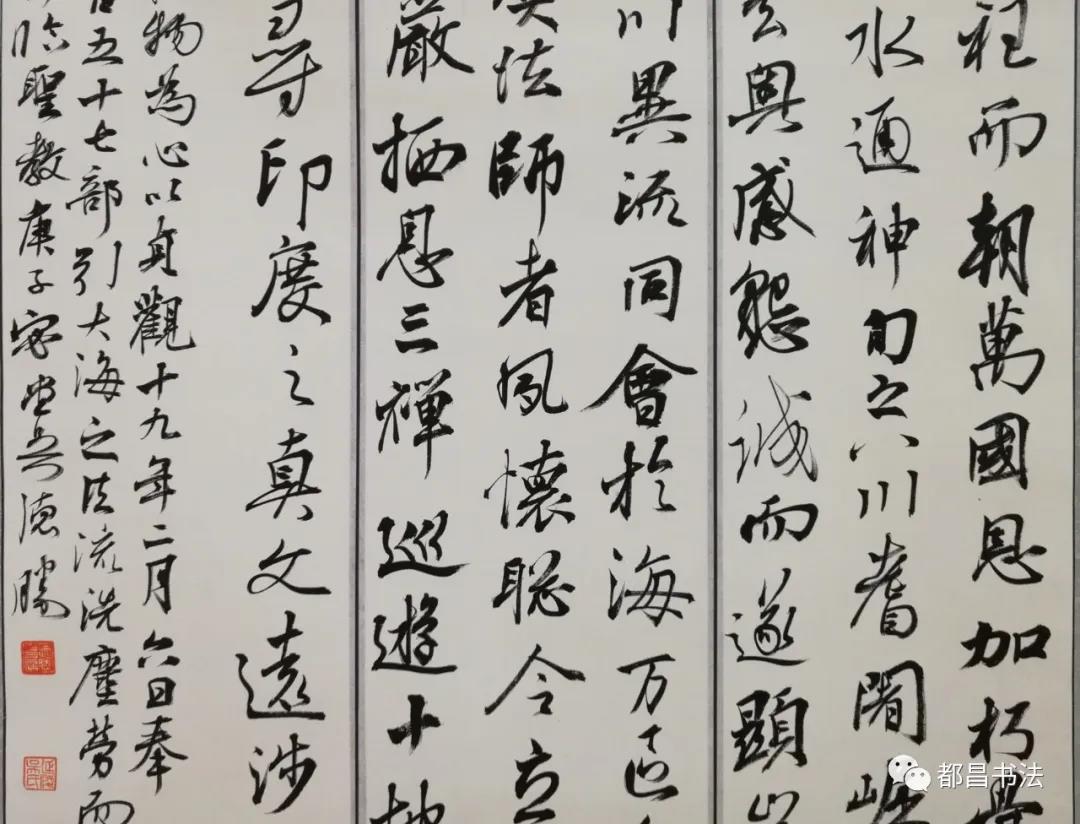 衽而朝萬國恩加朽
水通神甸之八川耆闍崛
玄奧感懇誠而遂顯
川異流同會於海万區
奘法師者夙懷聰令立
嚴栖息三禪巡遊十地
尋印度之真文遠涉
物為心以貞觀十九年二月六日奉
百五十七部引大海之法流洗塵勞而
臨聖教庚子吳德勝
都昌书法